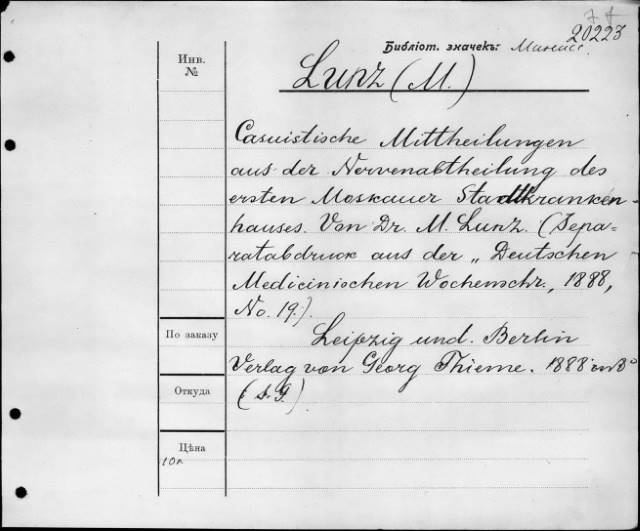 20223
Библіот. значекъ:
Lunz (M.)
Инв.
№
Casuistische Mittheilungen
aus der Nervenabtheilung des
ersten Moskauer Stadtkranken-
hauses. Von Dr. M. Lunz. (Sepa=
ratabdruck aus der „Deutschen
Medicinischen Wochenschr., 1888,
No. 19.)
По заказу
Leipzig und. Berlin
Verlag von Georg Thieme. 1888 in 8°
Откуда
Цѣна
10к